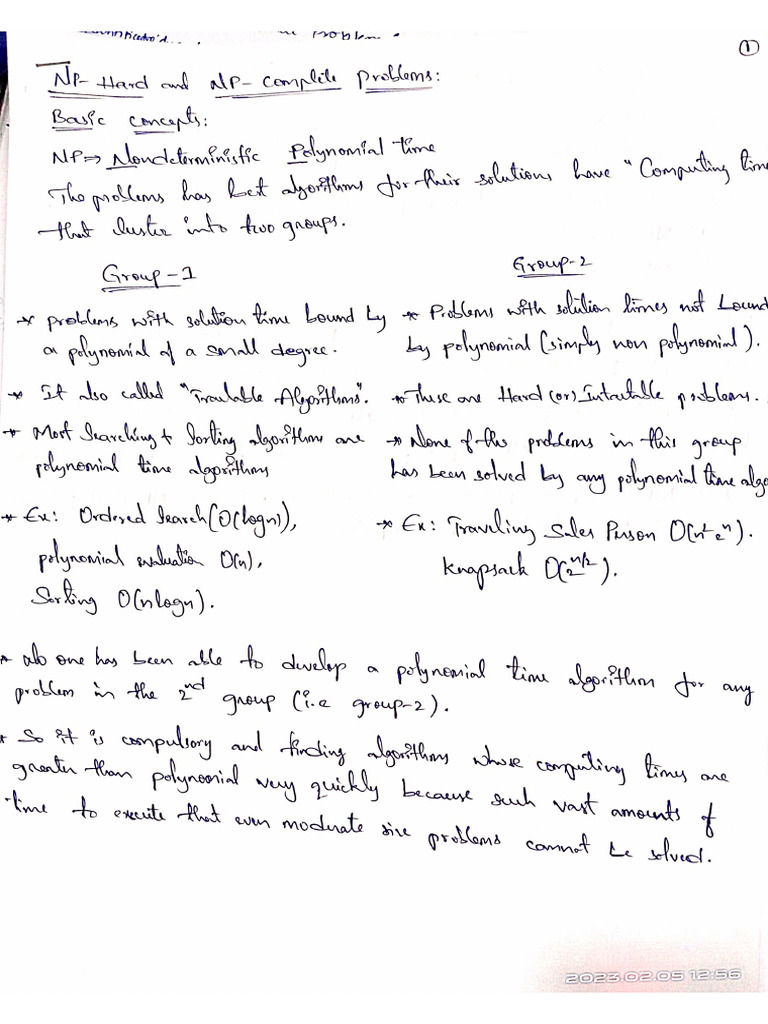 problem.
①
NP-Hard and NP-Complete Problems:
Basic Concepts:
NP⇒ Nondeterministic Polynomial time
The problems has best algorithms for their solutions have "Computing time
that cluster into two groups.
Group-1
* problems with solution time bound by
a polynomial of a small degree.
* It also called "Tractable Algorithms".
* Most Searching & Sorting algorithms are
polynomial time algorithms
* Ex: Ordered Search (O(logn)),
polynomial evaluation O(n),
Sorting O(nlogn).
Group-2
* Problems with solution times not bound
by polynomial (simply non polynomial).
* These are Hard (or) Intractable problems.
* None of the problems in this group
has been solved by any polynomial time algo
* Ex: Traveling Sales Person O(n² 2ⁿ).
Knapsack O(2^n/2).
* No one has been able to develop a polynomial time algorithm for any
problem in the 2nd group (i.e group-2).
* So it is compulsory and finding algorithms whose computing times are
greater than polynomial very quickly because such vast amounts of
time to execute that even moderate size problems cannot be solved.
2023.02.05 12:56